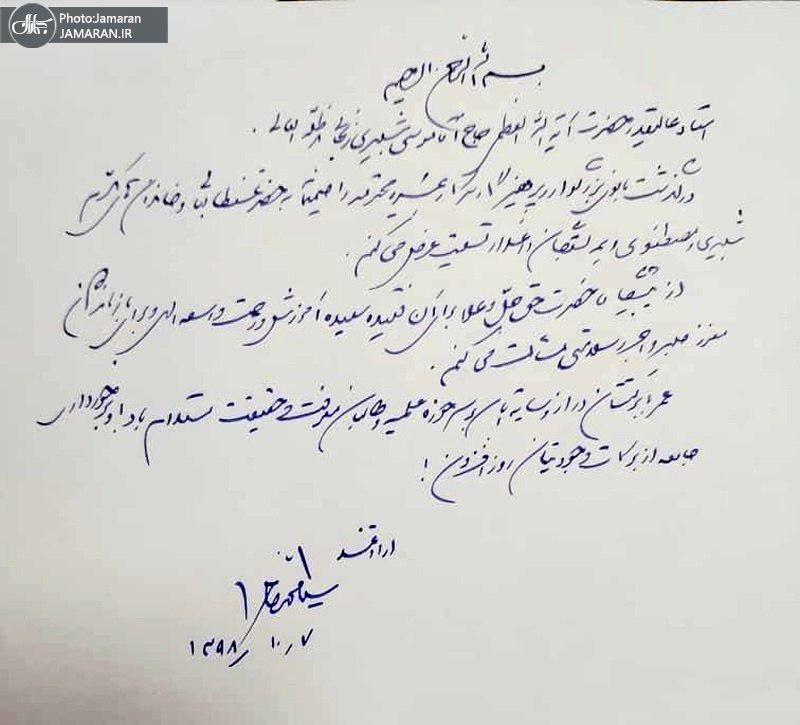 Photo:Jamaran
JAMARAN.IR
جماران
بسم الله الرحمن الرحیم
استاد عالیقدر حضرت آیة الله العظمی حاج آقا موسی شبیری زنجانی مد ظله العالی .
درگذشت بانوی بزرگوار و پرهیز سرکار علیه محترمه را صمیمانه به حضرتعالی و خاندان مکرم
شبیری و مصطفوی ایدهم الله تعالی تسلیت عرض می کنم .
از پیشگاه حضرت حق جل و علا برای آن فقیده سعیده آمرزش و رحمت واسعه الهی و برای بازماندگان
معزز صبر و اجر و سلامتی مسئلت می کنم .
عمر بابرکتتان دراز و سایه تان بر سر حوزه علمیه و طالبان معرفت و حقیقت مستدام باد و برخورداری
جامعه از برکات وجودیتان روزافزون !
ارادتمند
سید محمد خاتمی
۱۳۹۸/۱۰/۷